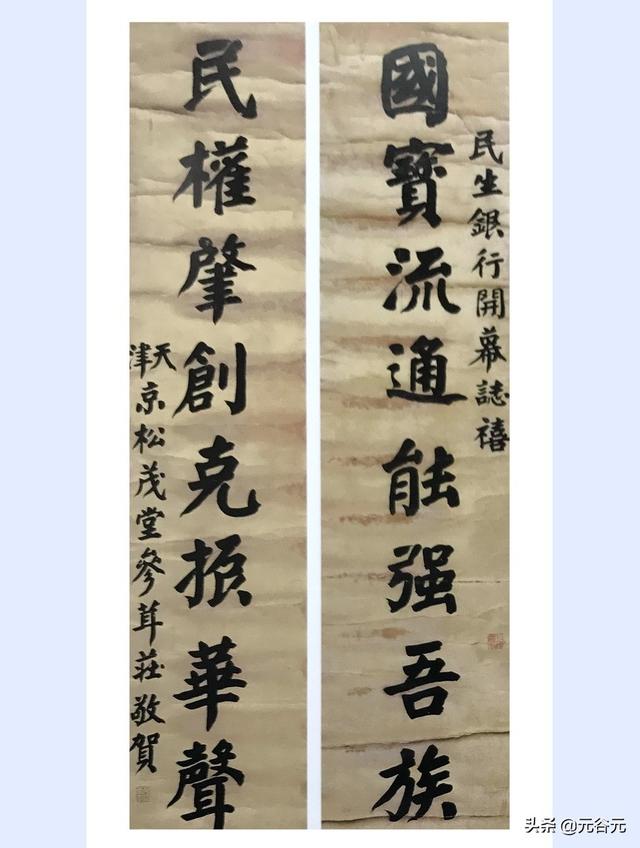 民生銀行開幕誌禧
國寶流通能强吾族
民權肇創克振華聲
天津
京松茂堂參茸莊敬賀
头条@元谷元